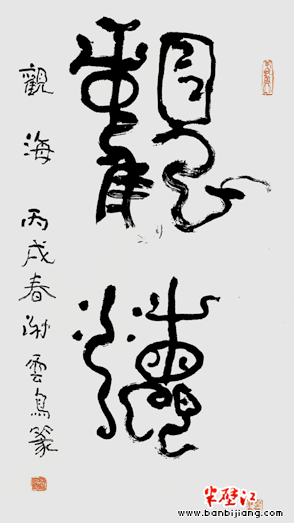 觀海
觀海 丙戌春谢雲鳥篆
半壁江
www.banbijiang.com